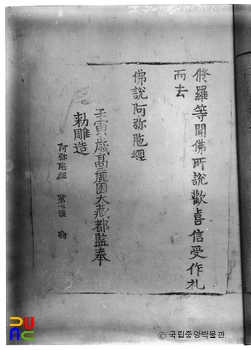 修羅等聞佛所說歡喜信受作礼
而去
佛說阿弥陁經
壬寅歲高麗國大藏都監奉
勅雕造
阿弥陁經 第七張
ⓒ 국립중앙박물관